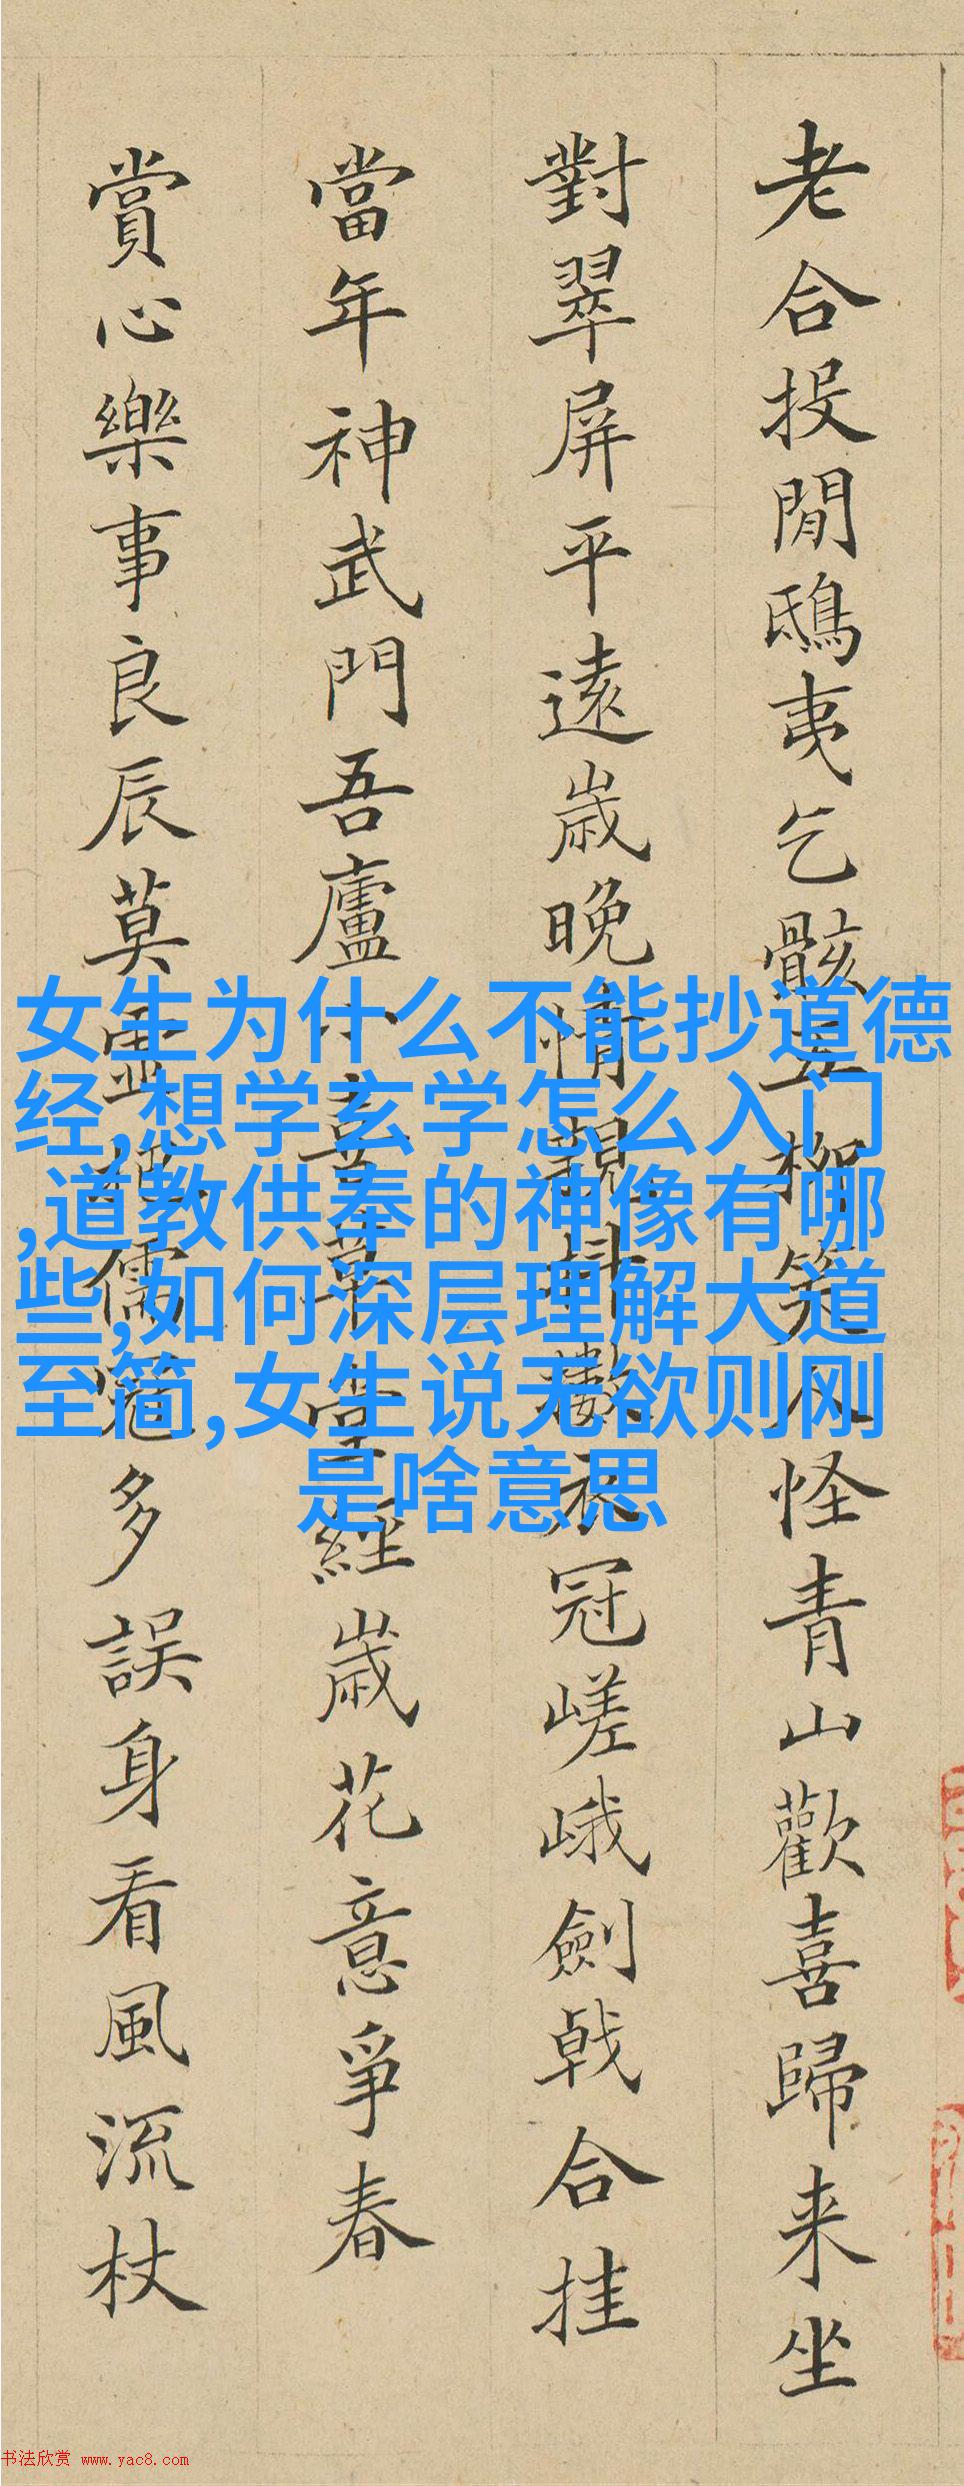 老合投閒鴟夷乞骸五柳笑人怪青山歡喜歸来坐
對翠屏平遠歲晚情親林壑衣冠嵯峨劍戟合挂
當年神武門吾廬小高華堂經歲花意爭春
賞心樂事良辰莫靈儒冠多誤身看風流杖
女生为什么不能抄道德
经,想学玄学怎么入门
,道教供奉的神像有哪
些,如何深层理解大道
至简,女生说无欲则刚
是啥意思
书法欣赏 www.yac8.com